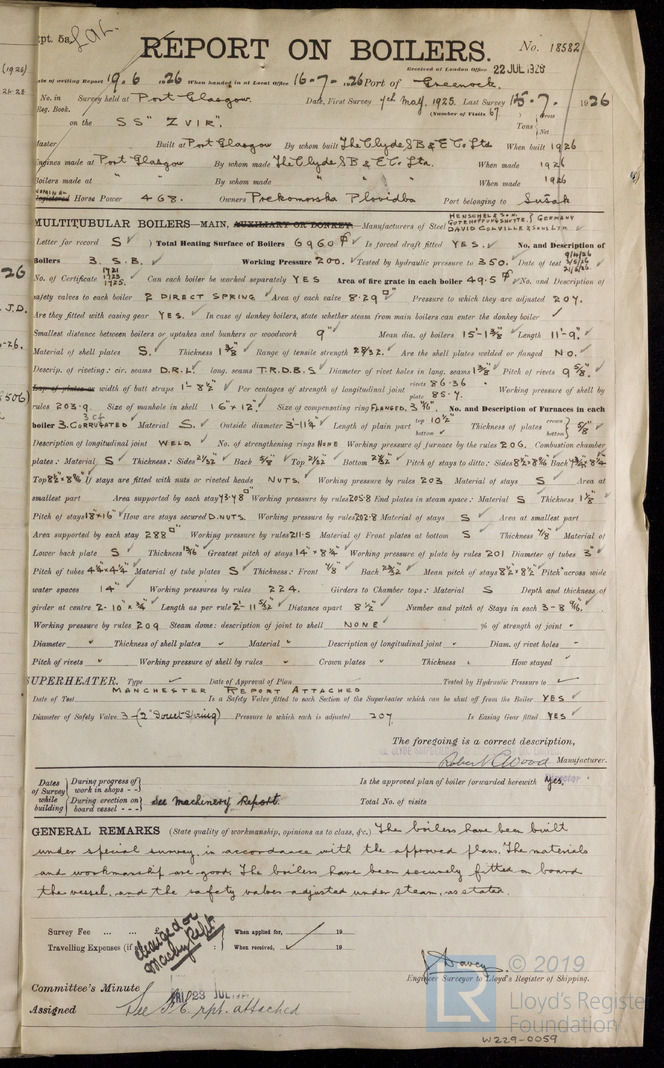 Rpt. 5a. Lat.
REPORT ON BOILERS.
No. 18582
Received at London Office 22 JUL 1926
Date of writing Report 19.6.1926 When handed in at Local Office 16-7-1926 Port of Greenock.
No. in Survey held at Port Glasgow. Date, First Survey 4th May, 1925. Last Survey 15-7-1926
Reg. Book. (Number of Visits 67
on the SS "ZVIR". Tons { Gross Net
Master Built at Port Glasgow By whom built The Clyde S B & E Co Ltd When built 1926
Engines made at Port Glasgow By whom made The Clyde S B & E Co Ltd. When made 1926
Boilers made at " " By whom made " " When made 1926
Nominal Registered Horse Power 468. Owners Prekomorska Plovidba Port belonging to Sušak
MULTITUBULAR BOILERS—MAIN, AUXILIARY OR DONKEY.—Manufacturers of Steel HENSCHEL & SOHN. GUTEHOFFNUNGSHÜTTE. } GERMANY DAVID COLVILLE & SONS LTD.
Letter for record S ) Total Heating Surface of Boilers 6960 Is forced draft fitted YES. No. and Description of
Boilers 3. S.B. Working Pressure 200. Tested by hydraulic pressure to 350. Date of test
No. of Certificate 1721 1723 1725. Can each boiler be worked separately YES Area of fire grate in each boiler 49.5 No. and Description of
safety valves to each boiler 2 DIRECT SPRING Area of each valve 8.29 Pressure to which they are adjusted 204.
Are they fitted with easing gear YES. In case of donkey boilers, state whether steam from main boilers can enter the donkey boiler
Smallest distance between boilers or uptakes and bunkers or woodwork 9" Mean dia. of boilers 15'-1 3/8" Length 11'-9".
Material of shell plates S. Thickness 1 3/8 Range of tensile strength 28/32. Are the shell plates welded or flanged NO.
Descrip. of riveting: cir. seams D.R.L. long. seams T.R.D.B.S Diameter of rivet holes in long. seams 1 3/8" Pitch of rivets 9 5/8"
Lap of plates or width of butt straps 1'-8 1/2" Per centages of strength of longitudinal joint rivets 86.36 plate 85.7. Working pressure of shell by
rules 203.9 Size of manhole in shell 16"x12" Size of compensating ring FLANGED. No. and Description of Furnaces in each
boiler 3. CORRUGATED Material S. Outside diameter 3-11 1/4" Length of plain part top 10 1/2" bottom Thickness of plates crown bottom } 5/8"
Description of longitudinal joint WELD No. of strengthening rings NONE Working pressure of furnace by the rules 206. Combustion chamber
plates: Material S Thickness: Sides 21/32" Back 5/8" Top 21/32" Bottom Pitch of stays to ditto: Sides Back
Top If stays are fitted with nuts or riveted heads NUTS. Working pressure by rules 203 Material of stays S Area at
smallest part Area supported by each stay Working pressure by rules 205.8 End plates in steam space: Material S Thickness 1 1/8"
Pitch of stays 18"x16" How are stays secured D.NUTS. Working pressure by rules 202.8 Material of stays S Area at smallest part
Area supported by each stay 288 Working pressure by rules 211.5 Material of Front plates at bottom S Thickness 7/8" Material of
Lower back plate S Thickness 13/16" Greatest pitch of stays 14"x8 1/4" Working pressure of plate by rules 201 Diameter of tubes 3"
Pitch of tubes 4 1/4"x4 1/4" Material of tube plates S Thickness: Front 7/8" Back 23/32" Mean pitch of stays 8 1/2"x8 1/2" Pitch across wide
water spaces 14" Working pressures by rules 224. Girders to Chamber tops: Material S Depth and thickness of
girder at centre 2-10"x3/4" Length as per rule 2'-11 5/32" Distance apart 8 1/2" Number and pitch of Stays in each 3-8 9/16".
Working pressure by rules 209 Steam dome: description of joint to shell NONE % of strength of joint
Diameter Thickness of shell plates Material Description of longitudinal joint Diam. of rivet holes
Pitch of rivets Working pressure of shell by rules Crown plates Thickness How stayed
SUPERHEATER. Type Date of Approval of Plan Tested by Hydraulic Pressure to
MANCHESTER REPORT ATTACHED
Date of Test Is a Safety Valve fitted to each Section of the Superheater which can be shut off from the Boiler YES
Diameter of Safety Valve 3-(2" Direct Spring) Pressure to which each is adjusted 207 Is Easing Gear fitted YES
The foregoing is a correct description,
Robert C Wood Manufacturer.
Dates of Survey while building { During progress of work in shops - - } Is the approved plan of boiler forwarded herewith Yes.
{ During erection on board vessel - - - } See Machinery Report. Total No. of visits
GENERAL REMARKS (State quality of workmanship, opinions as to class, &c.) The boilers have been built
under special survey, in accordance with the approved plans. The materials
and workmanship are good. The boilers have been securely fitted on board
the vessel, and the safety valves adjusted under steam, as stated.
Survey Fee ... ... When applied for, 19
Travelling Expenses (if When received, 19
Charged on Machy Rept
J Davey.
Engineer Surveyor to Lloyd's Register of Shipping.
Committee's Minute FRI 23 JUL 1926
Assigned See F.E. rpt. attached
© 2019
LR Lloyd's Register
Foundation
W229-0059